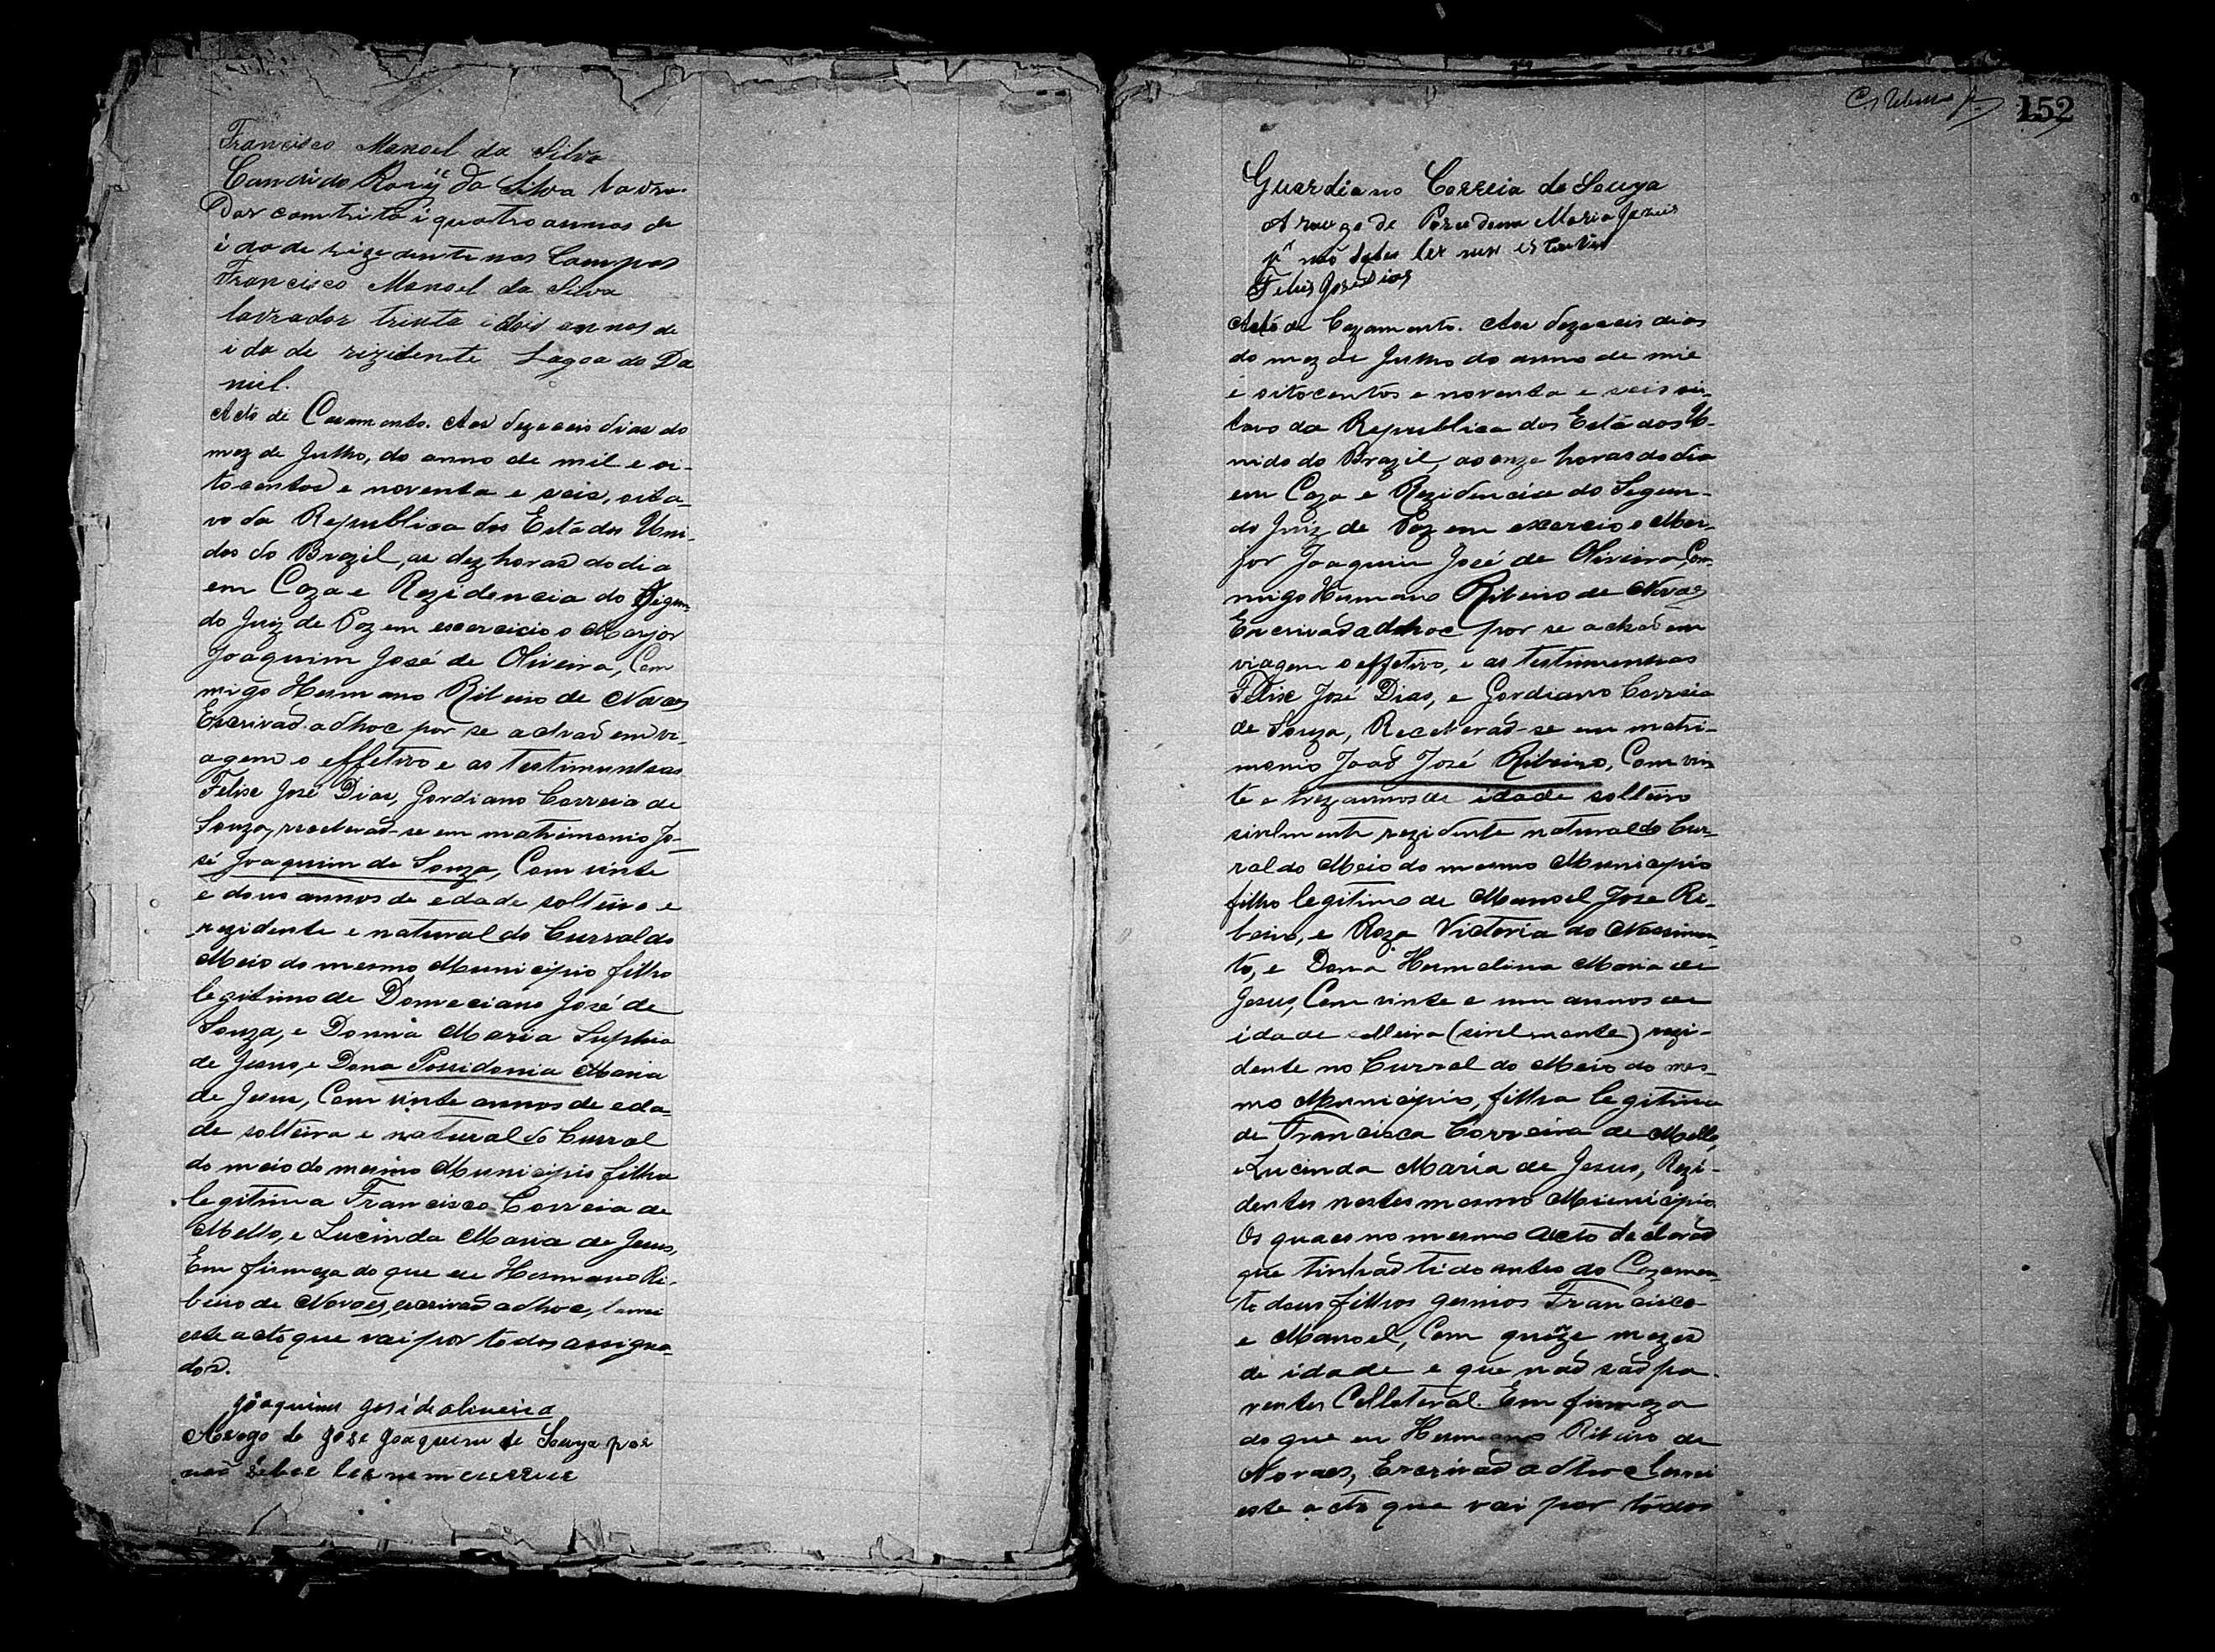 Francisco Manoel da Silva
Candido Roriz da Silva lavra-
dor com trita i quatro annos de
idade rizedente nos Campos
Francisco Manoel da Silva
lavrador trinta i dois annos de
idade rizidente Lagoa do Da
niel.
Acto de Casamento. Aos dezeceis dias do
mez de Julho, do anno de mil e oi-
tocentos e noventa e seis, oita-
vo da Republica dos Estados Uni-
dos do Brazil, as dez horas do dia
em Caza e Rezidencia do Segun-
do Juiz de Paz em escercicio o Marjor
Joaquim José de Oliveira, Com
migo Hermano Ribeiro de Novaes
Escrivaõ adhoc por se achaõ em vi-
agem o effetivo e as testimunhas
Felixe José Dias, Gordiano Correia de
Souza, receberaõ-se em matrimonio Jo-
sé Joaquim de Souza, Com vinte
e dous annos de edade solteiro e
rezidente e natural do Curral do
Meio do mesmo Municipio filho
legitimo de Domeciano José de
Souza, e Donna Maria Suphia
de Jesus, e Dona Possidonia Maria
de Jesus, Com vinte annos de eda-
de solteira e natural do Curral
do meio do mesmo Municipio filha
legitima Francisco Correia de
Mello, e Lucinda Maria de Jesus,
Em firmeza do que eu Hermano Ri-
beiro de Novaes, escrivaõ adhoc, lavrei
este acto que vai por todos assigna-
dos.
Joaquim José de oliveira
Arogo de José Joaquim de Souza por
naõ seber ler nem
C. 152
Guardiano Correia de Souza
Arrogo de Maria Jezuis
p naõ saber ler nem escrever
Felis José Dias
Acto de Cazamento. Aos dezeceis dias
do mez de Julho do anno de mil
e oitocentos e noventa e seis oi-
tavo da Republica dos Estados U-
nido do Brazil, as onze horas do dia
em Caza e Rezidencia do Segun-
do Juiz de Paz em exercio o Mar-
jor Joaquim José de Oliveira, Com-
migo Hermano Ribeiro de Novaes
Escrivaõ adhoc por se achaõ em
viagem o effetivo, e as testimunhas
Felixe José Dias, e Gordiano Correia
de Souza, Receberaõ-se em matri-
monio Joaõ José Ribeiro, Com vin
te e trez annos de idade solteiro
sivelmente rezidente natural do Cur-
ral do Meio do mesmo Municipio
filho legitimo de Manoel José Ri-
beiro, e Roza Victoria do Nascimen-
to, e Dona Hermelina Maria de
Jesus, Com vinte e um annos de
idade solteira (sivelmente) rezi-
dente no Curral do Meio do mes-
mo Municipio, filha legitima
de Francisca Correira de Mello,
e Lucinda Maria de Jesus, Rezi-
dentes nestes mesmo Municipio.
Os quaes no mesmo acto declaraõ
que tinhaõ tido antes do Cazamen-
to dous filhos gemios Francisco
e Manoel, Com quinze mezes
de idade e que naõ saõ pa-
rentes Collateral. Em firmeza
do que eu Hermano Ribeiro de
Novaes, Escrivaõ adhoc lavrei
este acto que vai por todos